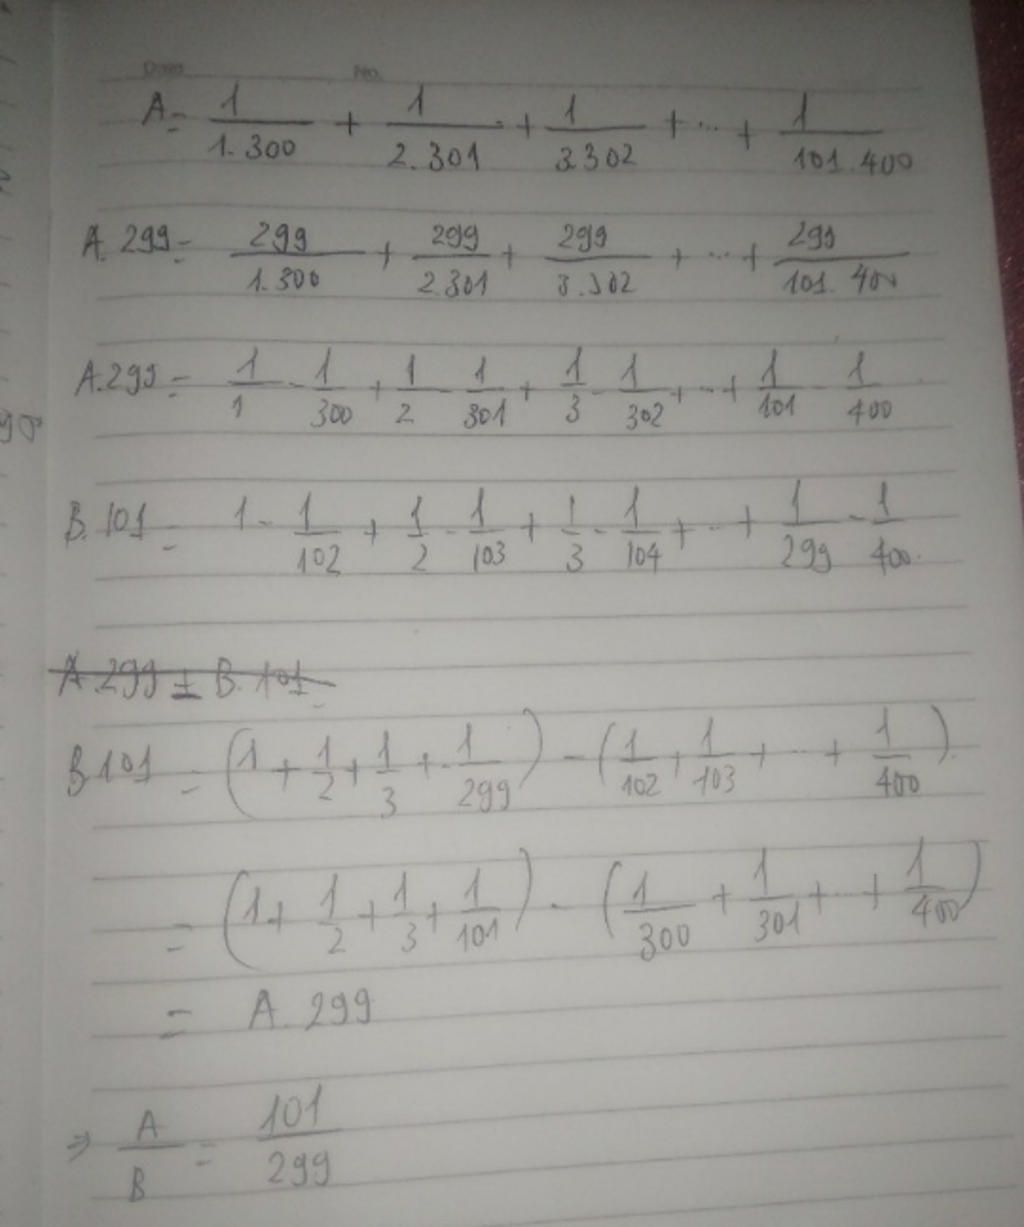 Date No.
A = 1/1.300 + 1/2.301 + 1/3.302 + ... + 1/101.400
A.299 = 299/1.300 + 299/2.301 + 299/3.302 + ... + 299/101.400
A.299 = 1/1 - 1/300 + 1/2 - 1/301 + 1/3 - 1/302 + ... + 1/101 - 1/400
B.101 = 1 - 1/102 + 1/2 - 1/103 + 1/3 - 1/104 + ... + 1/299 - 1/400
A.299 = B.101 =
B.101 = (1 + 1/2 + 1/3 + 1/299) - (1/102 + 1/103 + ... + 1/400)
= (1 + 1/2 + 1/3 + 1/101) - (1/300 + 1/301 + ... + 1/400)
= A.299
⇒ A/B = 101/299